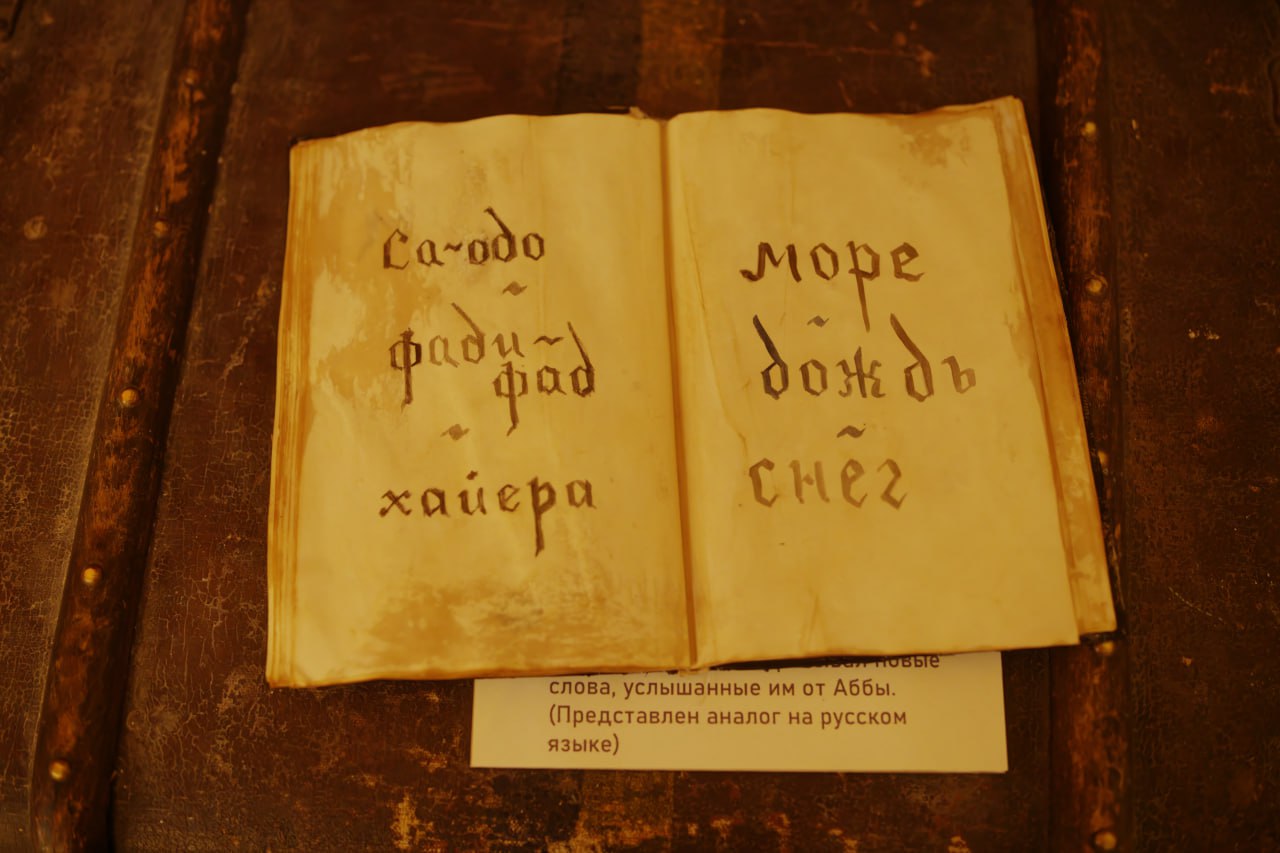 са~одо
~
фади~
фад
~
хайера
море
~
дождь
~
снег
новые
слова, услышанные им от Аббы.
(Представлен аналог на русском
языке)